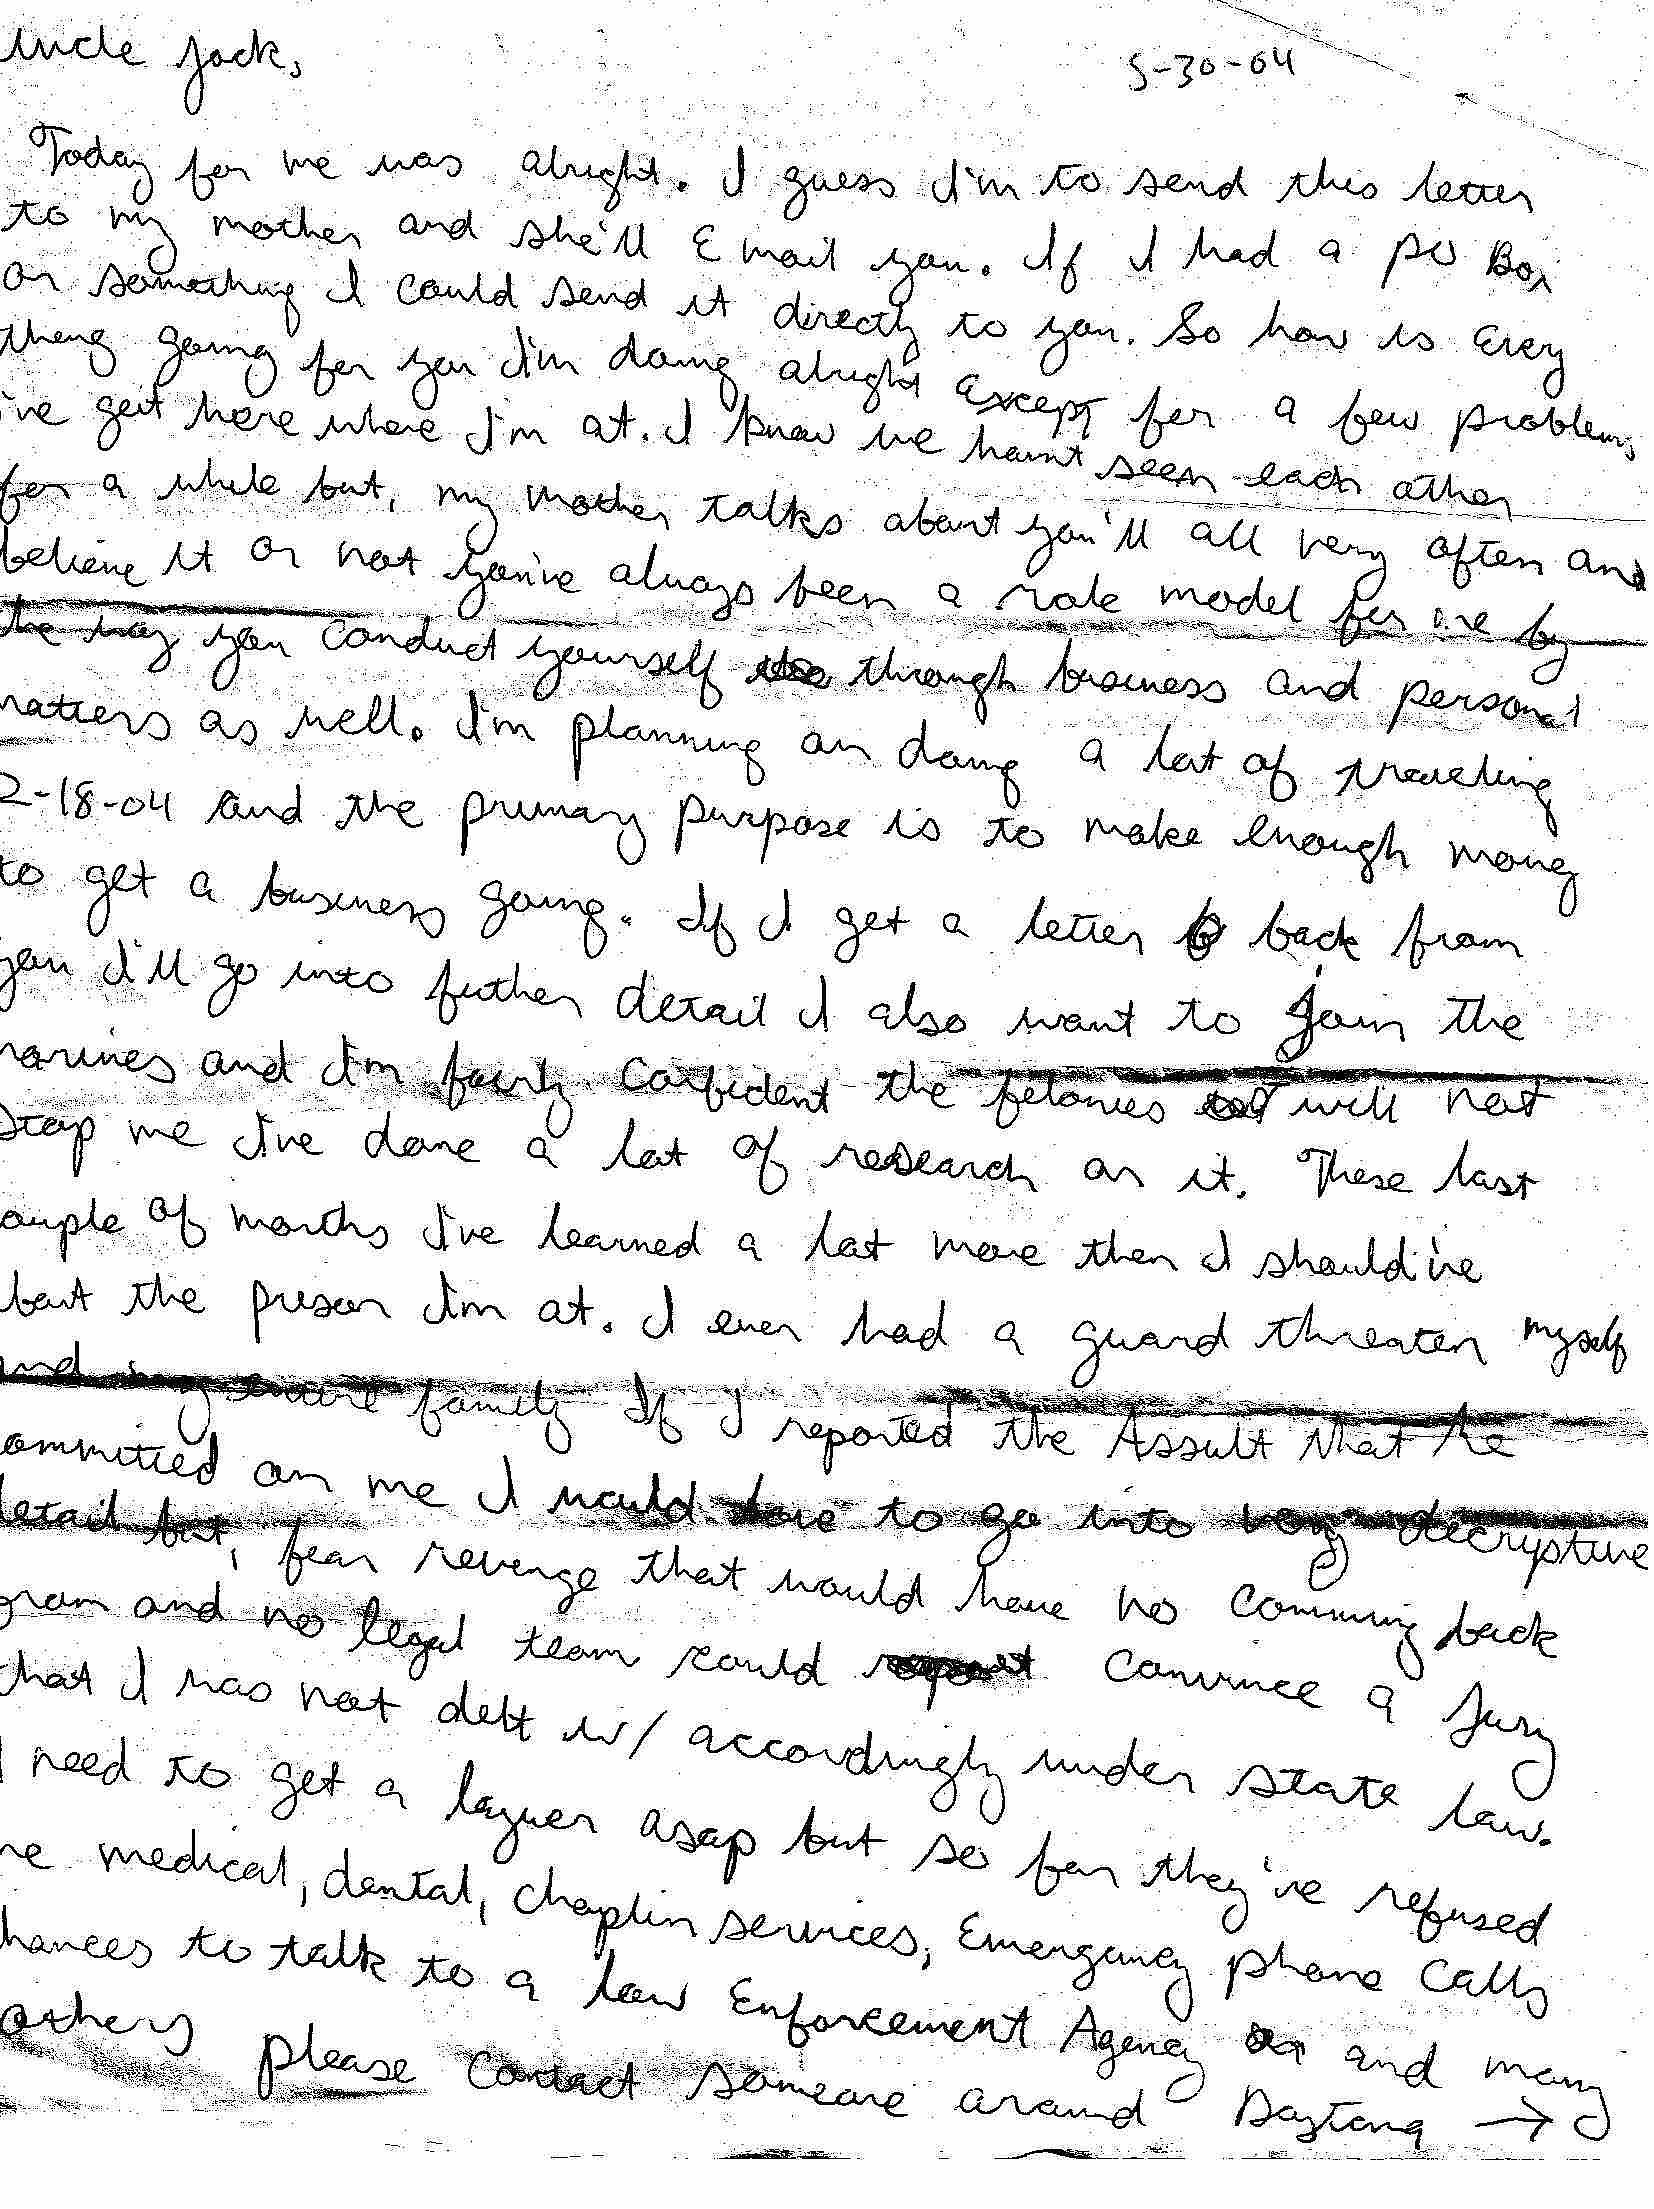 Uncle Jack,
5-30-04
Today for me was alright. I guess I'm to send this letter
to my mother and she'll Email you. If I had a PO Box
or something I could send it directly to you. So how is Every
thing going for you I'm doing alright Except for a few problems
i've got here where I'm at. I know we havnt seen each other
for a while but, my mother talks about you'll all very often and
believe it or not you've always been a role model for me by
the way you conduct yourself through business and personal
matters as well. I'm planning on doing a lot of traveling
2-18-04 and the primary purpose is to make Enough money
to get a business going. If I get a letter back from
you I'll go into futher detail I also want to Join the
marines and I'm fairly confident the felonies will not
stop me I've done a lot of research on it. These last
ouple of months I've learned a lot more then I should've
bout the prison I'm at. I even had a guard threaten myself
and my entire family If I reported the Assult that he
committed on me I would have to go into very decryptive
detail but, fear revenge that would have no comming back
from and no legal team could convince a Jury
that I was not delt w/ accordingly under state law.
I need to get a layuer asap but so far they've refused
me medical, dental, chaplin services, Emergancy phone calls
hances to talk to a law Enforcement Agency and many
others please contact someone around Daytona →